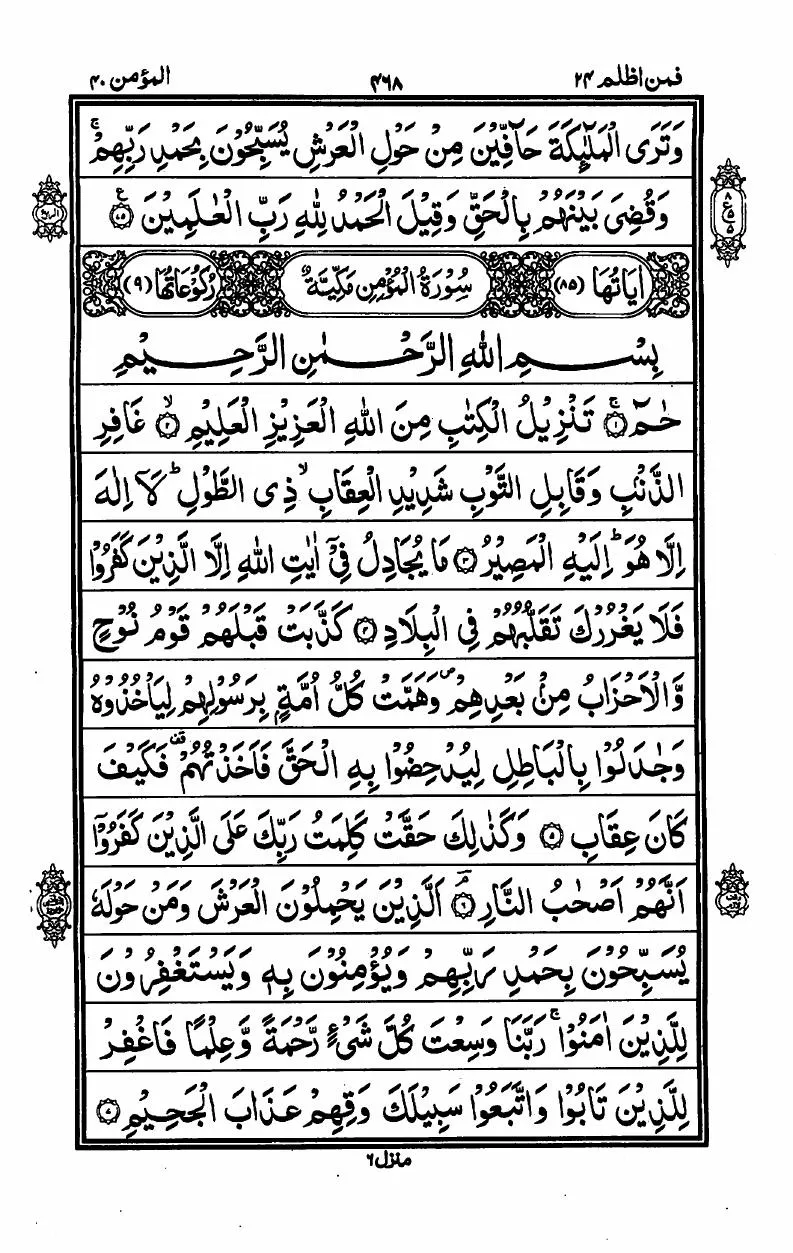 فمن اظلم ۲۴ ۴۶۸ المؤمن ۴۰
وَتَرَى الْمَلٰٓئِكَةَ حَآفِّيْنَ مِنْ حَوْلِ الْعَرْشِ يُسَبِّحُوْنَ بِحَمْدِ رَبِّهِمْ ۚ
وَقُضِىَ بَيْنَهُمْ بِالْحَقِّ وَقِيْلَ الْحَمْدُ لِلّٰهِ رَبِّ الْعٰلَمِيْنَ ۝۷۵
اٰيَاتُهَا (۸۵) سُوْرَةُ الْمُؤْمِنِ مَكِّيَّةٌ رُكُوْعَاتُهَا (۹)
بِسْمِ اللهِ الرَّحْمٰنِ الرَّحِيْمِ
حٰمٓ ۝۱ۚ تَنْزِيْلُ الْكِتٰبِ مِنَ اللهِ الْعَزِيْزِ الْعَلِيْمِ ۝۲ۙ غَافِرِ
الذَّنْۢبِ وَقَابِلِ التَّوْبِ شَدِيْدِ الْعِقَابِ ۙ ذِى الطَّوْلِ ؕ لَآ اِلٰهَ
اِلَّا هُوَ ؕ اِلَيْهِ الْمَصِيْرُ ۝۳ مَا يُجَادِلُ فِىْٓ اٰيٰتِ اللهِ اِلَّا الَّذِيْنَ كَفَرُوْا
فَلَا يَغْرُرْكَ تَقَلُّبُهُمْ فِى الْبِلَادِ ۝۴ كَذَّبَتْ قَبْلَهُمْ قَوْمُ نُوْحٍ
وَّالْاَحْزَابُ مِنْۢ بَعْدِهِمْ ۪ وَهَمَّتْ كُلُّ اُمَّةٍۭ بِرَسُوْلِهِمْ لِيَاْخُذُوْهُ
وَجٰدَلُوْا بِالْبَاطِلِ لِيُدْحِضُوْا بِهِ الْحَقَّ فَاَخَذْتُهُمْ ۟ فَكَيْفَ
كَانَ عِقَابِ ۝۵ وَكَذٰلِكَ حَقَّتْ كَلِمَتُ رَبِّكَ عَلَى الَّذِيْنَ كَفَرُوْٓا
اَنَّهُمْ اَصْحٰبُ النَّارِ ۝۶ۘ اَلَّذِيْنَ يَحْمِلُوْنَ الْعَرْشَ وَمَنْ حَوْلَهٗ
يُسَبِّحُوْنَ بِحَمْدِ رَبِّهِمْ وَيُؤْمِنُوْنَ بِهٖ وَيَسْتَغْفِرُوْنَ
لِلَّذِيْنَ اٰمَنُوْا ۚ رَبَّنَا وَسِعْتَ كُلَّ شَىْءٍ رَّحْمَةً وَّعِلْمًا فَاغْفِرْ
لِلَّذِيْنَ تَابُوْا وَاتَّبَعُوْا سَبِيْلَكَ وَقِهِمْ عَذَابَ الْجَحِيْمِ ۝۷
منزل ۶